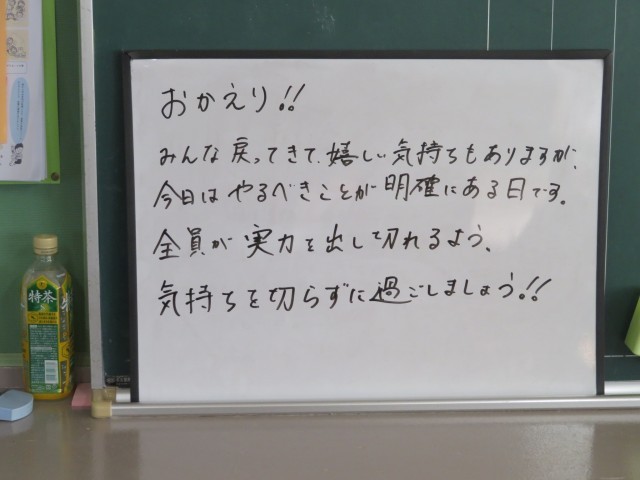 おかえり!!
みんな戻ってきて、嬉しい気持ちもありますが、
今日はやるべきことが明確にある日です。
全員が実力を出して切れるよう、
気持ちを切らずに過ごしましょう!!
特茶